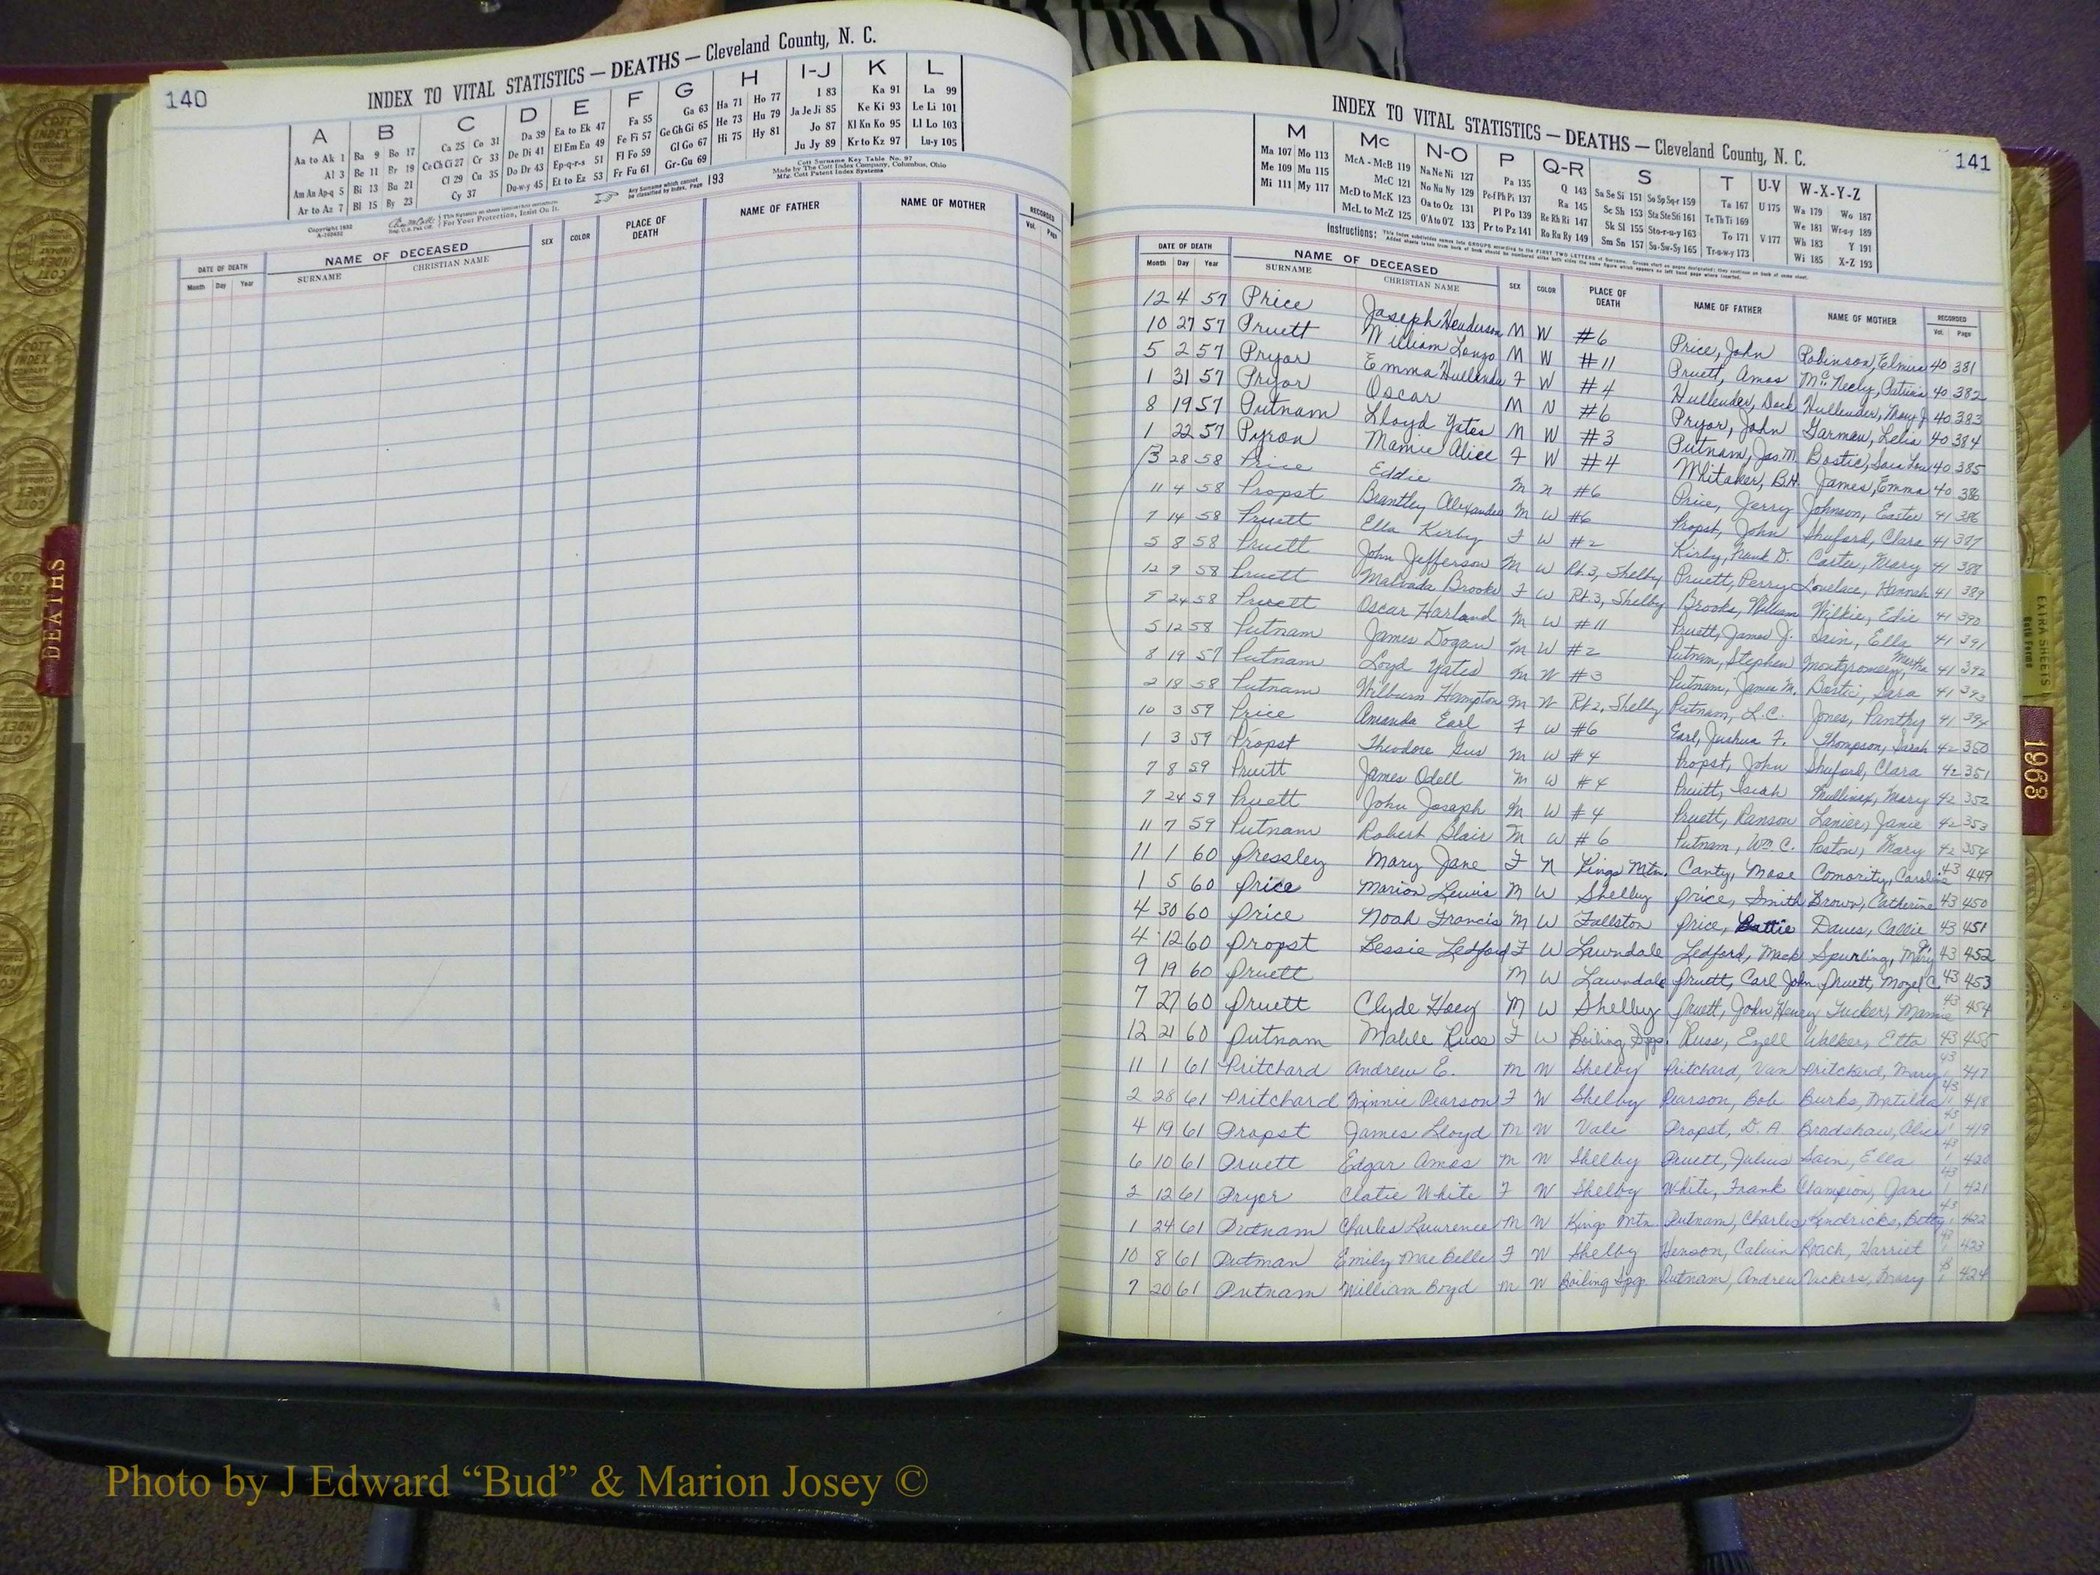 140
INDEX TO VITAL STATISTICS — DEATHS — Cleveland County, N. C.
A B C D E F G H I-J K L
Aa to Ak 1 Ba 9 Bo 17 Ca 25 Co 31 Da 39 Ea to Ek 47 Fa 55 Ga 63 Ha 71 Ho 77 I 83 Ka 91 La 99
Al 3 Be 11 Br 19 Ce Ch Ci 27 Cr 33 De Di 41 El Em En 49 Fe Fi 57 Ge Gh Gi 65 He 73 Hu 79 Ja Je Ji 85 Ke Ki 93 Le Li 101
Am An Ap-q 5 Bi 13 Bu 21 Cl 29 Cu 35 Do Dr 43 Ep-q-r-s 51 Fl Fo 59 Gl Go 67 Hi 75 Hy 81 Jo 87 Kl Kn Ko 95 Ll Lo 103
Ar to Az 7 Bl 15 By 23 Cy 37 Du-w-y 45 Et to Ez 53 Fr Fu 61 Gr-Gu 69 Ju Jy 89 Kr to Kz 97 Lu-y 105
Copyright 1932
Any Surname which cannot be classified by Index, Page 193
Cott Surname Key Table No. 97
Made by The Cott Index Company, Columbus, Ohio
Mfg. Cott Patent Index Systems
DATE OF DEATH NAME OF DECEASED SEX COLOR PLACE OF DEATH NAME OF FATHER NAME OF MOTHER RECORDED
Month Day Year SURNAME CHRISTIAN NAME Vol. Page
DEATHS
INDEX TO VITAL STATISTICS — DEATHS — Cleveland County, N. C.
141
M Mc N-O P Q-R S T U-V W-X-Y-Z
Ma 107 Mo 113 McA - McB 119 Na Ne Ni 127 Pa 135 Q 143 Sa Se Si 151 So Sp Sq-r 159 Ta 167 U 175 Wa 179 Wo 187
Me 109 Mu 115 McC 121 No Nu Ny 129 Pe-f Ph Pi 137 Ra 145 Sc Sh 153 Sta Ste Sti 161 Te Th Ti 169 We 181 Wr-u-y 189
Mi 111 My 117 McD to McK 123 Oa to Oz 131 Pl Po 139 Re Rh Ri 147 Sk Sl 155 Sto-r-u-y 163 To 171 V 177 Wh 183 Y 191
McL to McZ 125 O'A to O'Z 133 Pr to Pz 141 Ro Ru Ry 149 Sm Sn 157 Su-Sw-Sy 165 Tr-u-w-y 173 Wi 185 X-Z 193
DATE OF DEATH NAME OF DECEASED SEX COLOR PLACE OF DEATH NAME OF FATHER NAME OF MOTHER RECORDED
Month Day Year SURNAME CHRISTIAN NAME Vol. Page
12 4 57 Price Joseph Henderson M W #6 Price, John Robinson, Elmira 40 381
10 27 57 Pruett William Lonzo M W #11 Pruett, Amos McNeely, 40 382
5 2 57 Pryor Emma Hullender F W #4 Hullender, Hullender, Mary J 40 383
1 31 57 Pryor Oscar M N #6 Pryor, John Garman, Lelia 40 384
8 19 57 Putnam Lloyd Yates M W #3 Putnam, Jas. M. Bostic, Sara Lou 40 385
1 22 57 Pyron Mamie Alice F W #4 Whitaker, B.H. James, Emma 40 386
3 28 58 Price Eddie M N #6 Price, Jerry Johnson, Easter 41 386
11 4 58 Propst Brantley Alexander M W #6 Propst, John Shuford, Clara 41 387
7 14 58 Pruett Ella Kirby F W #2 Kirby, Carter, Mary 41 388
5 8 58 Pruett John Jefferson M W Rt. 3, Shelby Pruett, Perry Lovelace, Hannah 41 389
12 9 58 Pruett Malvada Brooks F W Rt. 3, Shelby Brooks, William Wilkie, Edie 41 390
9 24 58 Pruett Oscar Harland M W #11 Pruett, James J. Sain, Ella 41 391
5 12 58 Putnam James Dogan M W #2 Putnam, Stephen Montgomery, Martha 41 392
8 19 57 Putnam Loyd Yates M W #3 Putnam, James M. Bostic, Sara 41 393
2 18 58 Putnam Wilburn Hampton M W Rt 2, Shelby Putnam, L.C. Jones, Panthy 41 394
10 3 59 Price Amanda Earl F W #6 Earl, Joshua F. Thompson, Sarah 42 350
1 3 59 Propst Theodore Gus M W #4 Propst, John Shuford, Clara 42 351
7 8 59 Pruitt James Odell M W #4 Pruitt, Isiah Mullinax, Mary 42 352
7 24 59 Pruett John Joseph M W #4 Pruett, Ransom Lanier, Janie 42 353
11 7 59 Putnam Robert Blair M W #6 Putnam, Wm. C. Poston, Mary 42 354
11 1 60 Pressley Mary Jane F N Kings Mtn. Canty, Mose Comority, Caroline 43 449
1 5 60 Price Marion Lewis M W Shelby Price, Smith Brown, Catherine 43 450
4 30 60 Price Noah Francis M W Fallston Price, Davis, Callie 43 451
4 12 60 Propst Bessie Ledford F W Lawndale Ledford, Mack Spurling, Mary 43 452
9 19 60 Pruett M W Lawndale Pruett, Carl John Pruett, Mozel C. 43 453
7 27 60 Pruett Clyde Hoey M W Shelby Pruett, John Henry Tucker, Mamie 43 454
12 21 60 Putnam Mable Russ F W Boiling Spgs. Russ, Ezell Walker, Etta 43 455
11 1 61 Pritchard Andrew E. M W Shelby Pritchard, Van Pritchard, Mary 43 417
2 28 61 Pritchard Minnie Pearson F W Shelby Pearson, Bob Burks, Matilda 43 418
4 19 61 Propst James Lloyd M W Vale Propst, D. A Bradshaw, Alice 43 419
6 10 61 Pruett Edgar Amos M W Shelby Pruett, Julius Sain, Ella 43 420
2 12 61 Pryor Clatie White F W Shelby White, Frank Champion, Jane 43 421
1 24 61 Putnam Charles Lawrence M W Kings Mtn. Putnam, Charles Kendricks, Betty 43 422
10 8 61 Putman Emily Mae Belle F W Shelby Henson, Calvin Roach, Harriet 43 423
7 20 61 Putnam William Boyd M W Boiling Spgs Putnam, Andrew Vickers, Mary 424
EXTRA SHEETS
1968
Photo by J Edward “Bud” & Marion Josey ©